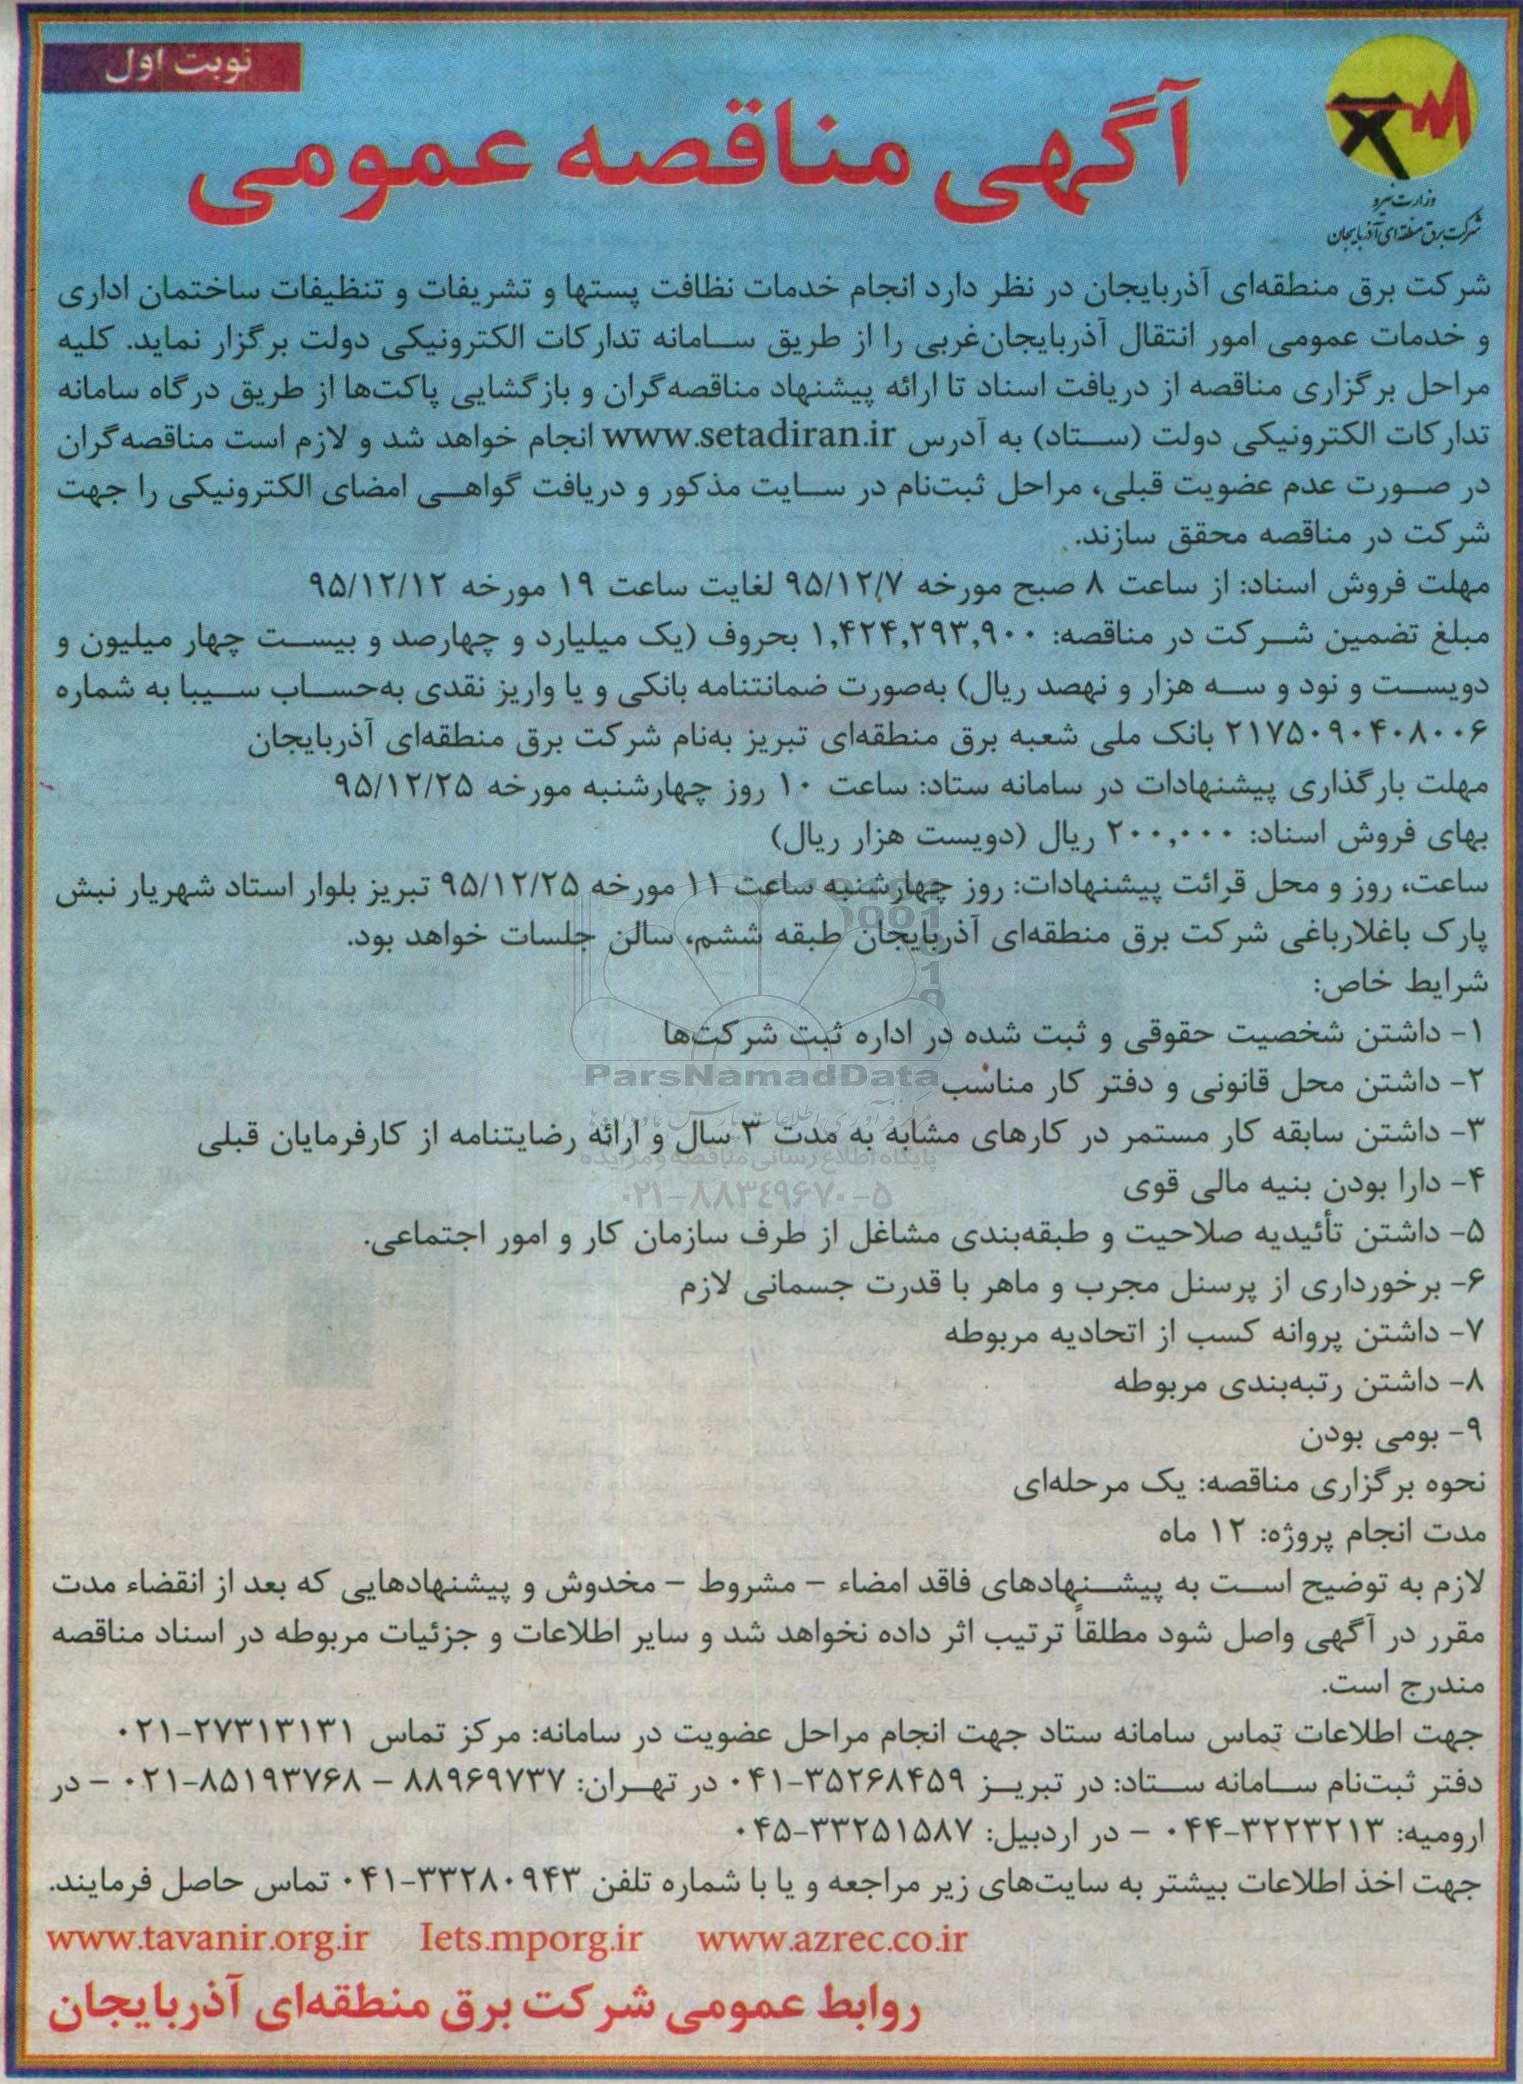 نوبت اول
وزارت نیرو
شرکت برق منطقه‌ای آذربایجان
آگهی مناقصه عمومی
شرکت برق منطقه‌ای آذربایجان در نظر دارد انجام خدمات نظافت پستها و تشریفات و تنظیفات ساختمان اداری
و خدمات عمومی امور انتقال آذربایجان‌غربی را از طریق سامانه تدارکات الکترونیکی دولت برگزار نماید. کلیه
مراحل برگزاری مناقصه از دریافت اسناد تا ارائه پیشنهاد مناقصه‌گران و بازگشایی پاکت‌ها از طریق درگاه سامانه
تدارکات الکترونیکی دولت (ستاد) به آدرس www.setadiran.ir انجام خواهد شد و لازم است مناقصه‌گران
در صورت عدم عضویت قبلی، مراحل ثبت‌نام در سایت مذکور و دریافت گواهی امضای الکترونیکی را جهت
شرکت در مناقصه محقق سازند.
مهلت فروش اسناد: از ساعت ۸ صبح مورخه ۹۵/۱۲/۷ لغایت ساعت ۱۹ مورخه ۹۵/۱۲/۱۲
مبلغ تضمین شرکت در مناقصه: ۱,۴۲۴,۲۹۳,۹۰۰ بحروف (یک میلیارد و چهارصد و بیست چهار میلیون و
دویست و نود و سه هزار و نهصد ریال) به‌صورت ضمانتنامه بانکی و یا واریز نقدی به‌حساب سیبا به شماره
۲۱۷۵۰۹۰۴۰۸۰۰۶ بانک ملی شعبه برق منطقه‌ای تبریز به‌نام شرکت برق منطقه‌ای آذربایجان
مهلت بارگذاری پیشنهادات در سامانه ستاد: ساعت ۱۰ روز چهارشنبه مورخه ۹۵/۱۲/۲۵
بهای فروش اسناد: ۲۰۰,۰۰۰ ریال (دویست هزار ریال)
ساعت، روز و محل قرائت پیشنهادات: روز چهارشنبه ساعت ۱۱ مورخه ۹۵/۱۲/۲۵ تبریز بلوار استاد شهریار نبش
پارک باغلارباغی شرکت برق منطقه‌ای آذربایجان طبقه ششم، سالن جلسات خواهد بود.
شرایط خاص:
۱- داشتن شخصیت حقوقی و ثبت شده در اداره ثبت شرکت‌ها
ParsNamadData
۲- داشتن محل قانونی و دفتر کار مناسب
۳- داشتن سابقه کار مستمر در کارهای مشابه به مدت ۳ سال و ارائه رضایتنامه از کارفرمایان قبلی
پایگاه اطلاع رسانی مناقصه و مزایده
۴- دارا بودن بنیه مالی قوی
۰۲۱-۸۸۳۴۹۶۷۰-۵
۵- داشتن تأئیدیه صلاحیت و طبقه‌بندی مشاغل از طرف سازمان کار و امور اجتماعی.
۶- برخورداری از پرسنل مجرب و ماهر با قدرت جسمانی لازم
۷- داشتن پروانه کسب از اتحادیه مربوطه
۸- داشتن رتبه‌بندی مربوطه
۹- بومی بودن
نحوه برگزاری مناقصه: یک مرحله‌ای
مدت انجام پروژه: ۱۲ ماه
لازم به توضیح است به پیشنهادهای فاقد امضاء - مشروط - مخدوش و پیشنهادهایی که بعد از انقضاء مدت
مقرر در آگهی واصل شود مطلقاً ترتیب اثر داده نخواهد شد و سایر اطلاعات و جزئیات مربوطه در اسناد مناقصه
مندرج است.
جهت اطلاعات تماس سامانه ستاد جهت انجام مراحل عضویت در سامانه: مرکز تماس ۲۷۳۱۳۱۳۱-۰۲۱
دفتر ثبت‌نام سامانه ستاد: در تبریز ۳۵۲۶۸۴۵۹-۰۴۱ در تهران: ۸۸۹۶۹۷۳۷ - ۸۵۱۹۳۷۶۸-۰۲۱ - در
ارومیه: ۳۲۲۳۲۱۳-۰۴۴ - در اردبیل: ۳۳۲۵۱۵۸۷-۰۴۵
جهت اخذ اطلاعات بیشتر به سایت‌های زیر مراجعه و یا با شماره تلفن ۳۳۲۸۰۹۴۳-۰۴۱ تماس حاصل فرمایند.
www.tavanir.org.ir Iets.mporg.ir www.azrec.co.ir
روابط عمومی شرکت برق منطقه‌ای آذربایجان